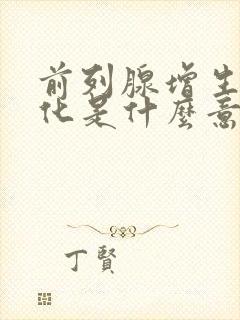 前列腺增生
化是什麼意
丁賢